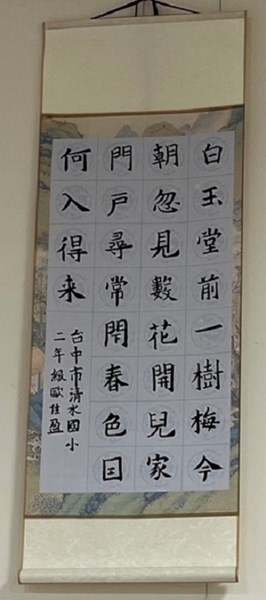 白玉堂前一樹梅今
朝忽見數花開兒家
門戶尋常閉春色因
何入得来
台中市清水國小
二年級歐佳盈